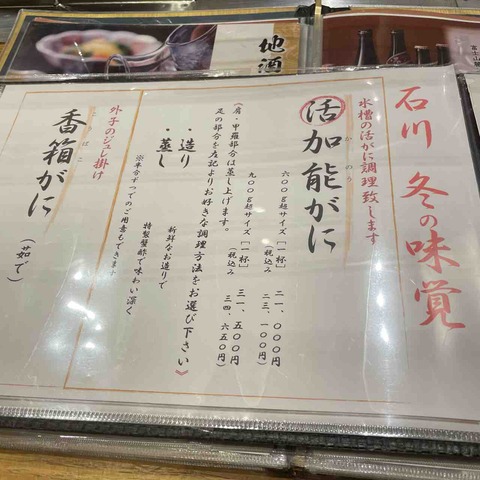 地酒
富士山
石川 冬の味覚
水槽の活がに調理致します
活 加能がに
かのう
六〇〇g超サイズ［一杯］ 二一、〇〇〇円
（税込み 二三、一〇〇円）
九〇〇g超サイズ［一杯］ 三一、五〇〇円
（税込み 三四、六五〇円）
《肩・甲羅部分は蒸し上げます。
足の部分を左記よりお好きな調理方法をお選び下さい》
・造り 新鮮なお造りで
・蒸し 特製蟹酢で味わい深く
※半分ずつでのご用意もできます
外子のジュレ掛け
香箱がに
こうばこ
（茹で）